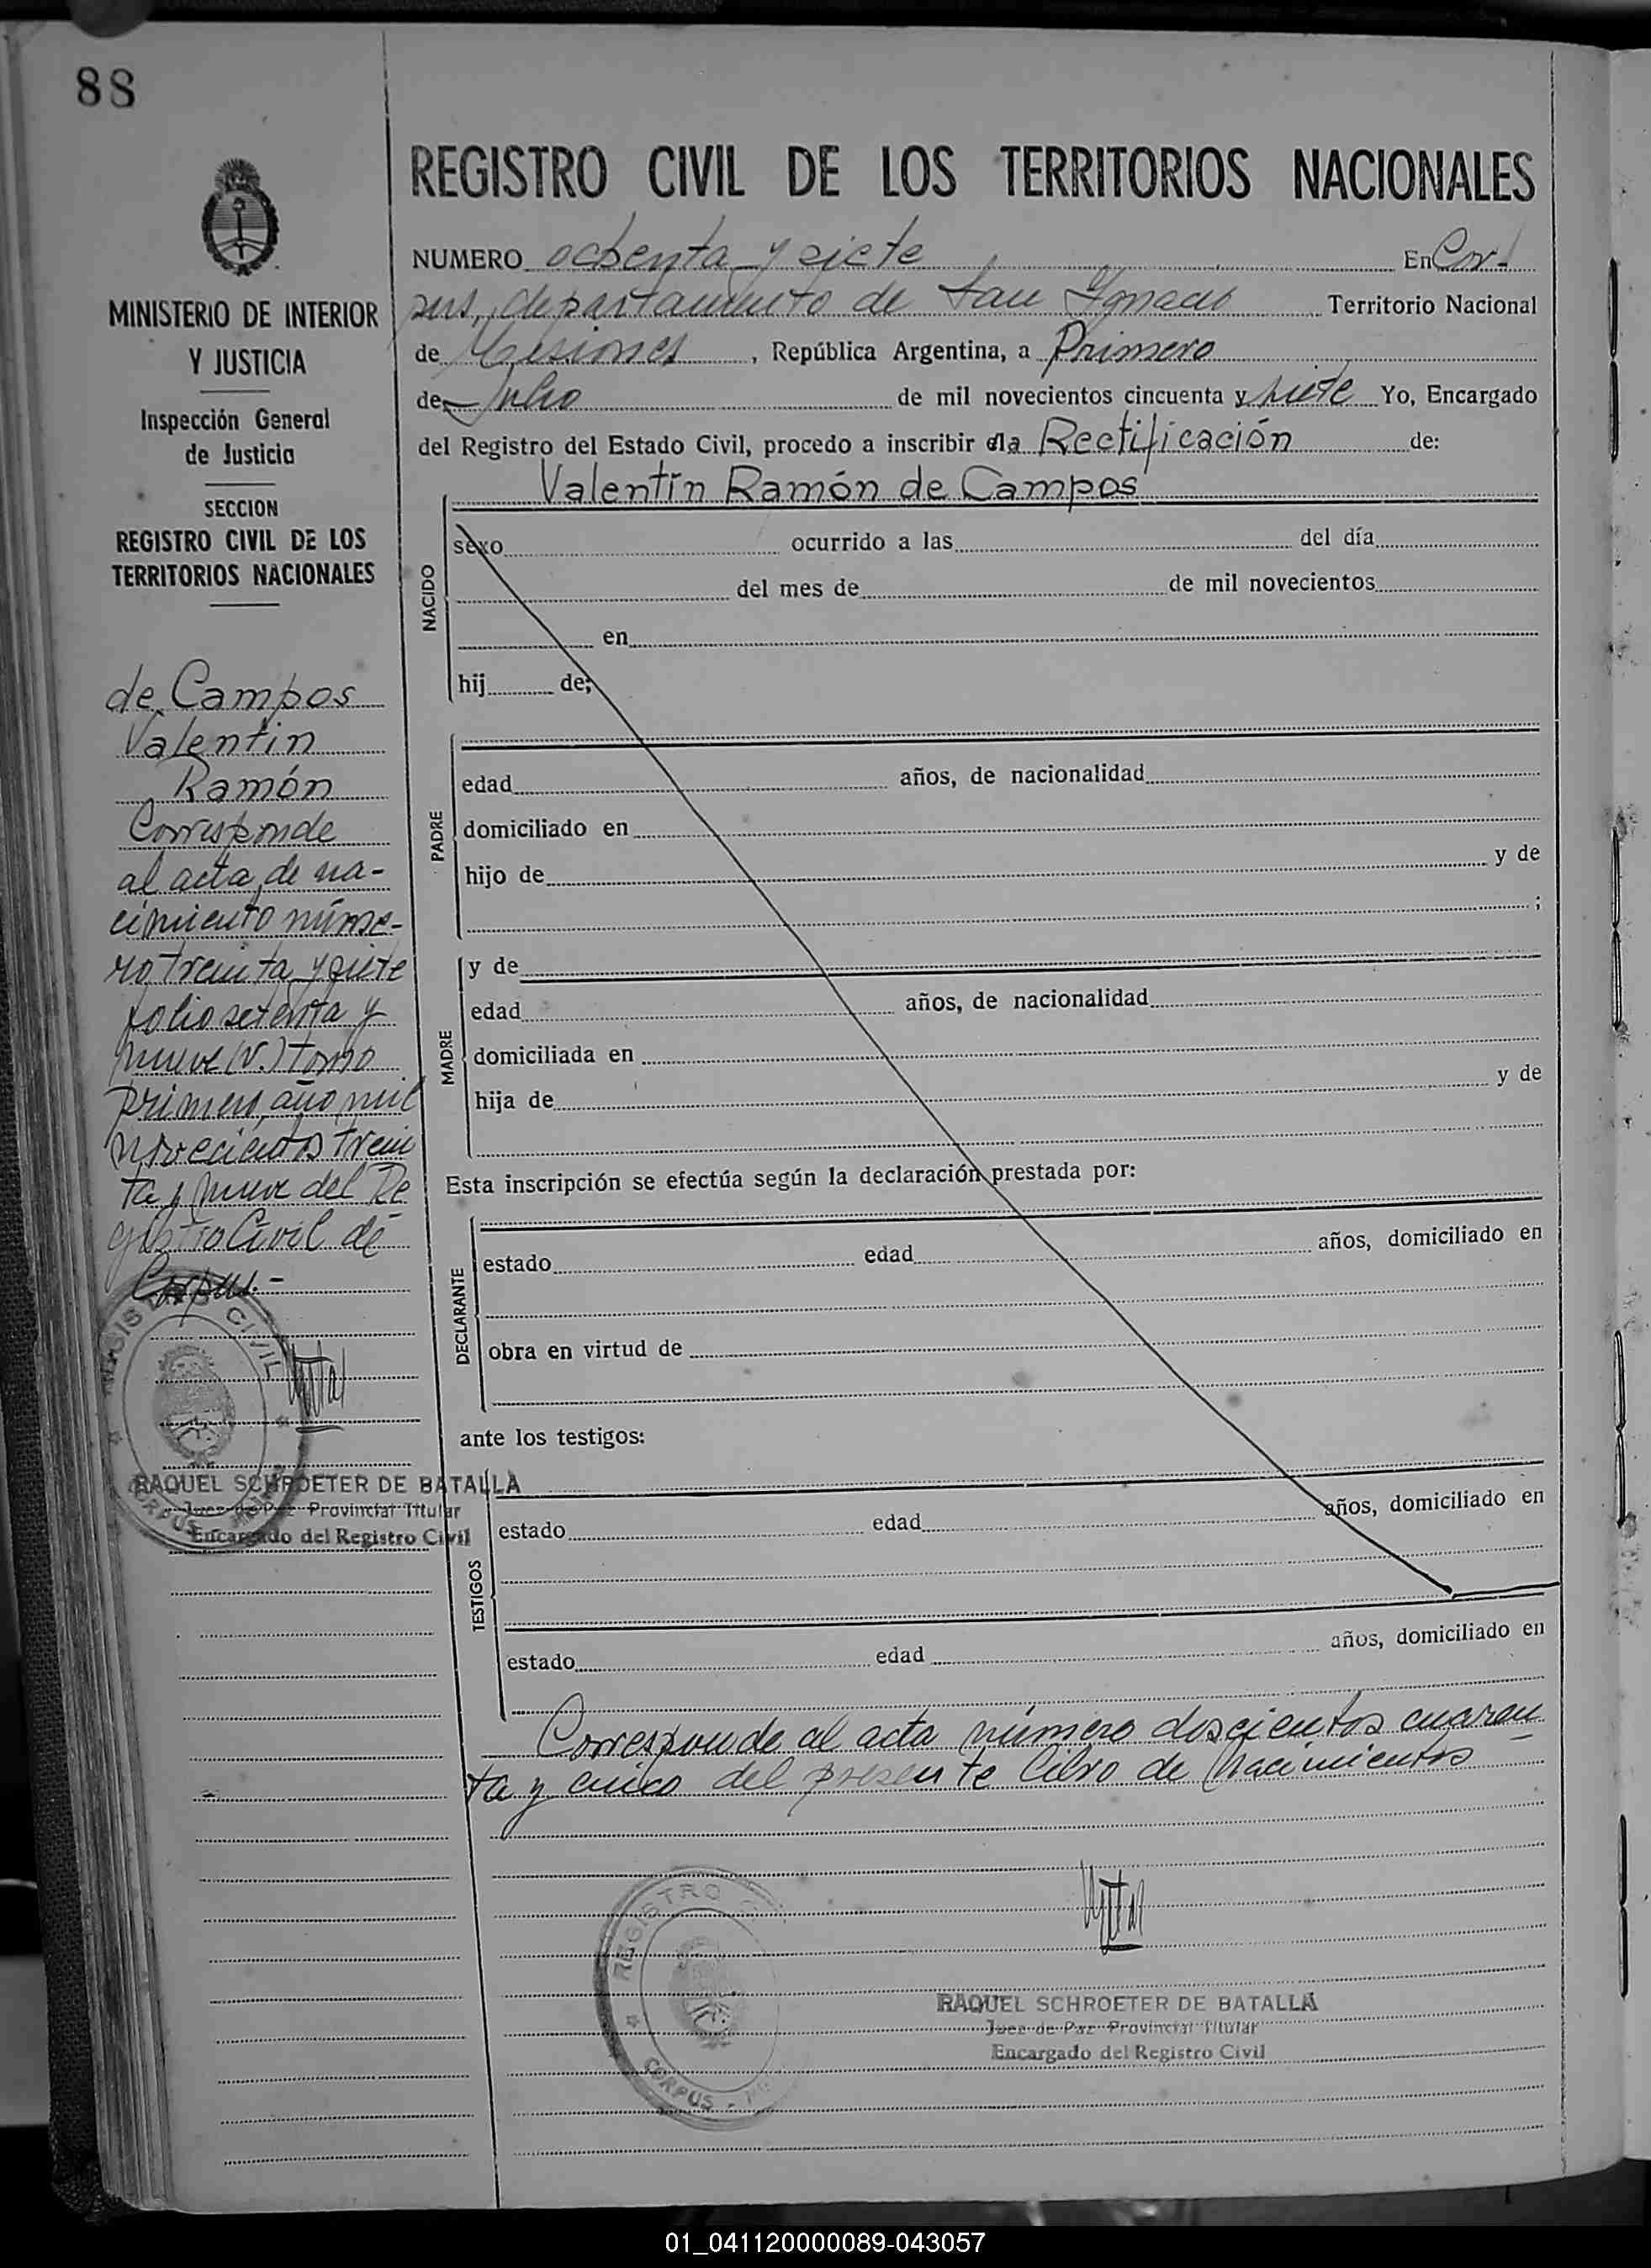 88
MINISTERIO DE INTERIOR
Y JUSTICIA
Inspección General
de Justicia
SECCION
REGISTRO CIVIL DE LOS
TERRITORIOS NACIONALES
de Campos
Valentín
Ramón
Corresponde
al acta de na-
cimiento núme-
ro treinta y siete
folio setenta y
nueve (v.) tomo
primero, año mil
novecientos trein
ta y nueve del Re
gistro Civil de
Corpus.-
REGISTRO CIVIL
CORPUS
RAQUEL SCHROETER DE BATALLA
Juez de Paz Provincial Titular
Encargado del Registro Civil
REGISTRO CIVIL DE LOS TERRITORIOS NACIONALES
NUMERO ochenta y siete En Cor-
pus, departamento de San Ignacio Territorio Nacional
de Misiones, República Argentina, a Primero
de Julio de mil novecientos cincuenta y siete Yo, Encargado
del Registro del Estado Civil, procedo a inscribir la Rectificación de:
Valentín Ramón de Campos
NACIDO
sexo ocurrido a las del día
del mes de de mil novecientos
en
hij de;
PADRE
edad años, de nacionalidad
domiciliado en
hijo de y de
;
MADRE
y de
edad años, de nacionalidad
domiciliada en
hija de y de
Esta inscripción se efectúa según la declaración prestada por:
DECLARANTE
estado edad años, domiciliado en
obra en virtud de
ante los testigos:
TESTIGOS
estado edad años, domiciliado en
estado edad años, domiciliado en
Corresponde al acta número doscientos cuaren
ta y cinco del presente libro de Nacimientos
REGISTRO
CORPUS
RAQUEL SCHROETER DE BATALLA
Juez de Paz Provincial Titular
Encargado del Registro Civil
01_041120000089-043057